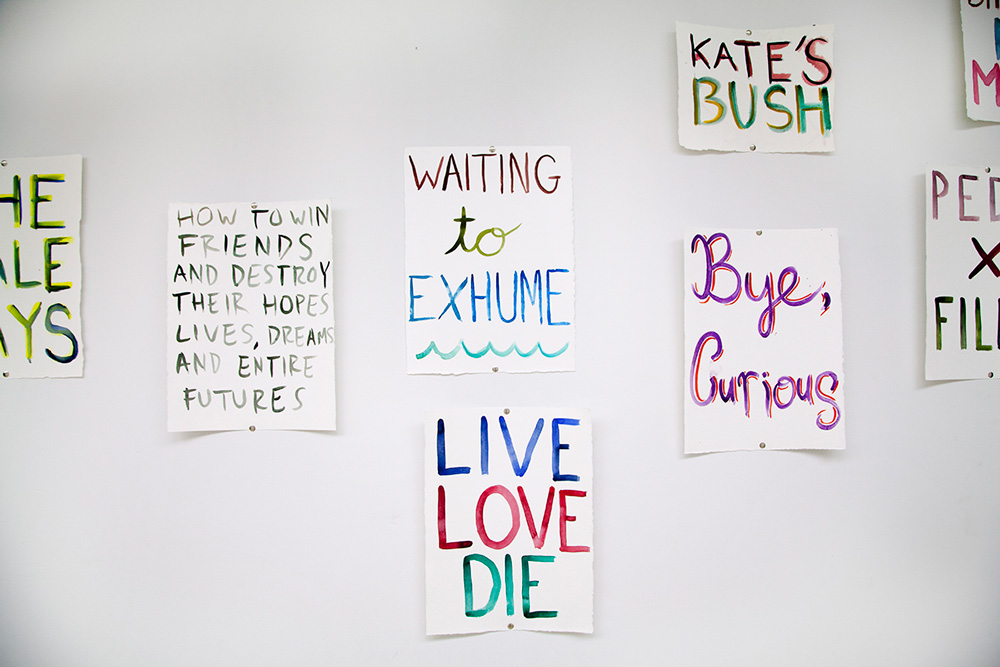 HE
ALE
AYS
HOW TO WIN
FRIENDS
AND DESTROY
THEIR HOPES
LIVES, DREAMS
AND ENTIRE
FUTURES
WAITING
to
EXHUME
LIVE
LOVE
DIE
KATE'S
BUSH
Bye,
Curious
PED
X
FIL
M